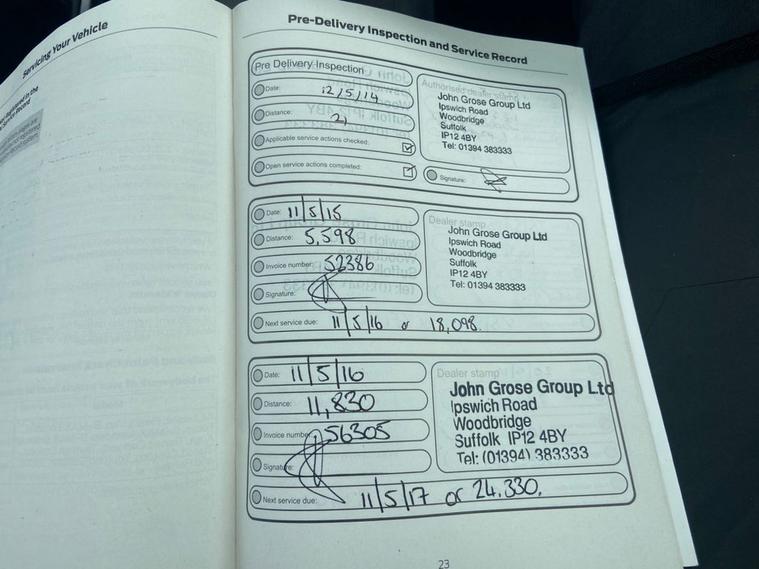 Servicing Your Vehicle
Pre-Delivery Inspection and Service Record
Pre Delivery Inspection
Date: 12/5/14
Distance: 21
Applicable service actions checked:
Open service actions completed:
Authorised dealer stamp
John Grose Group Ltd
Ipswich Road
Woodbridge
Suffolk
IP12 4BY
Tel: 01394 383333
Signature:
Date: 11/5/15
Distance: 5,598
Invoice number: 52386
Signature:
Next service due: 11/5/16 or 18,098
Dealer stamp
John Grose Group Ltd
Ipswich Road
Woodbridge
Suffolk
IP12 4BY
Tel: 01394 383333
Date: 11/5/16
Distance: 11,830
Invoice number: 56305
Signature:
Next service due: 11/5/17 or 24.330.
Dealer stamp
John Grose Group Ltd
Ipswich Road
Woodbridge
Suffolk IP12 4BY
Tel: (01394) 383333
23